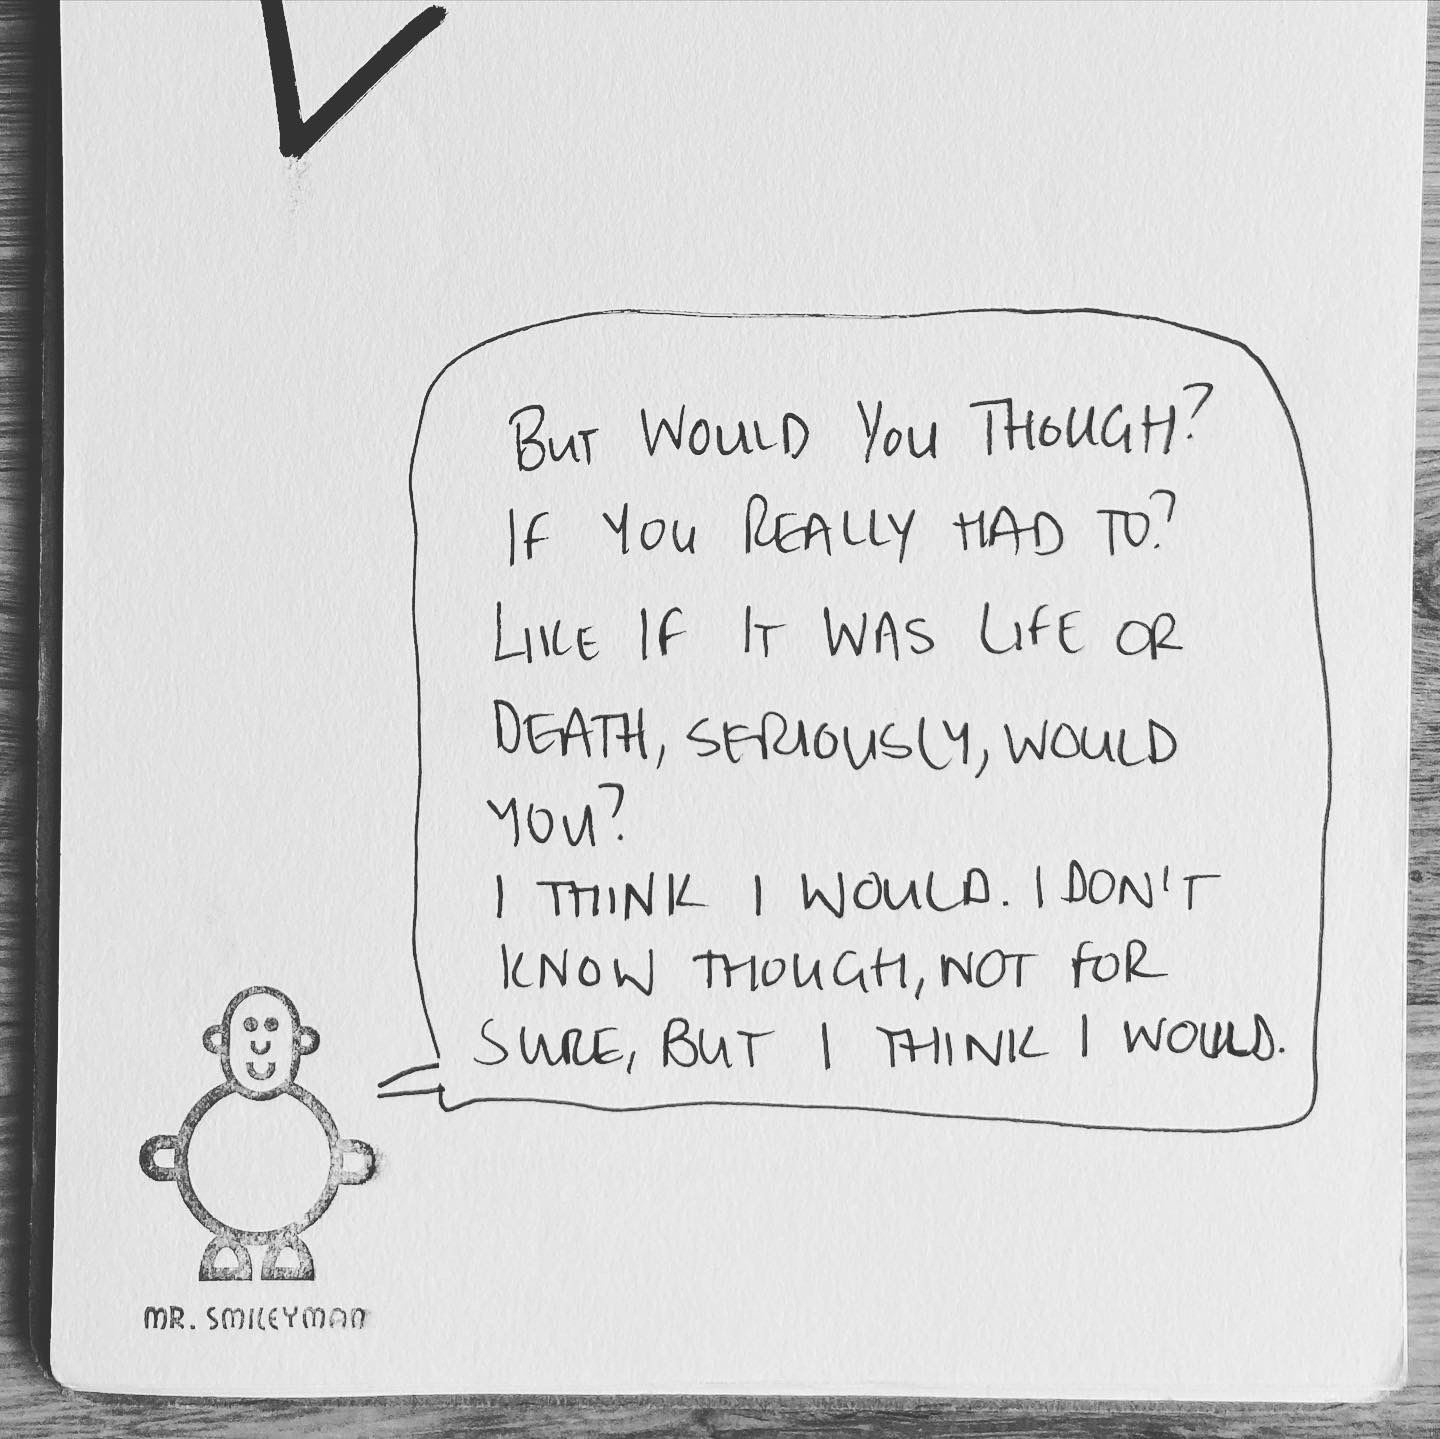 BUT WOULD YOU THOUGH?
IF YOU REALLY HAD TO?
LIKE IF IT WAS LIFE OR
DEATH, SERIOUSLY, WOULD
YOU?
I THINK I WOULD. I DON'T
KNOW THOUGH, NOT FOR
SURE, BUT I THINK I WOULD.
MR. SMILEYMAN